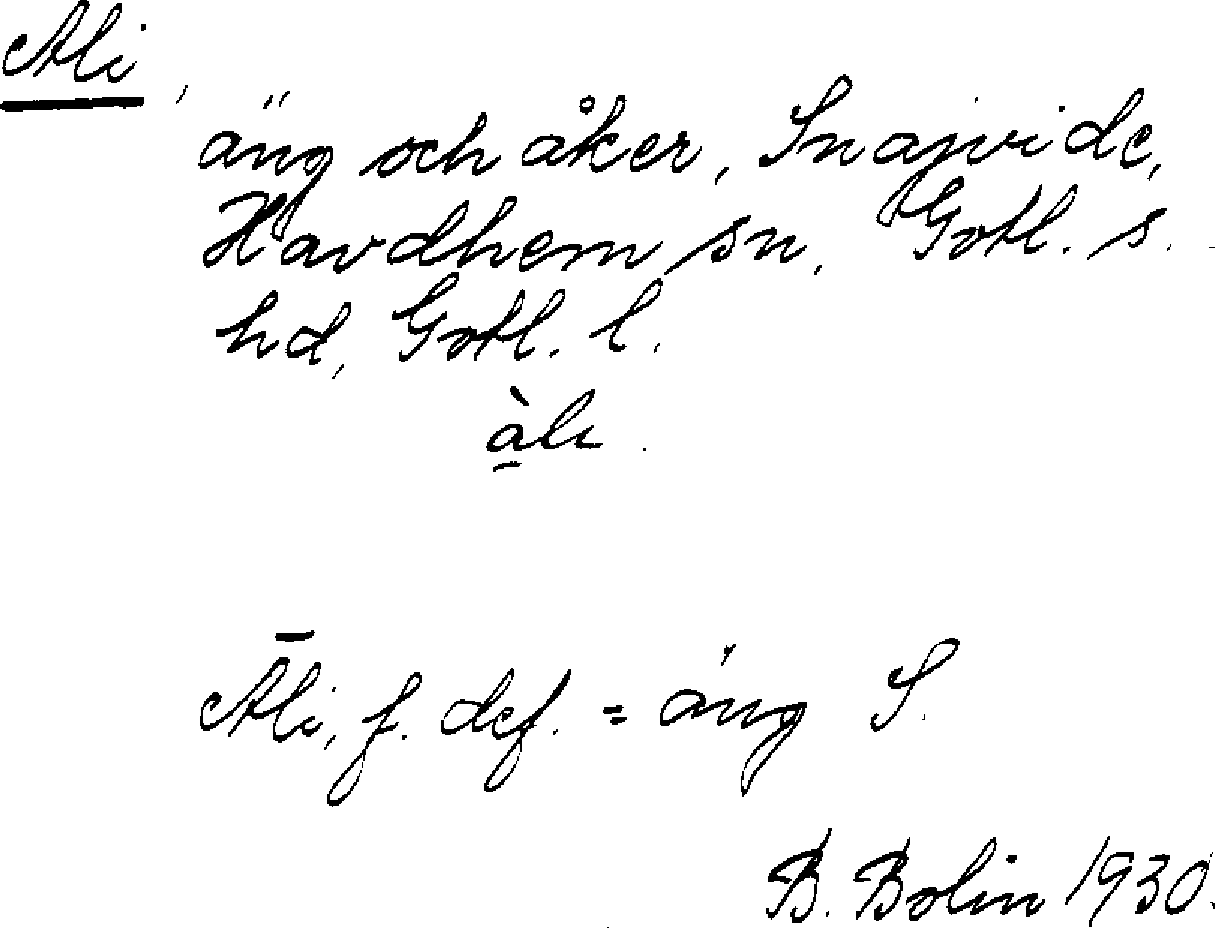 Ali,
äng och åker, Snajvide,
Havdhem sn, Gotl. s.
hd, Gotl. l.
à̱li.
Āli, f. def. = äng S.
B. Bolin 1930.